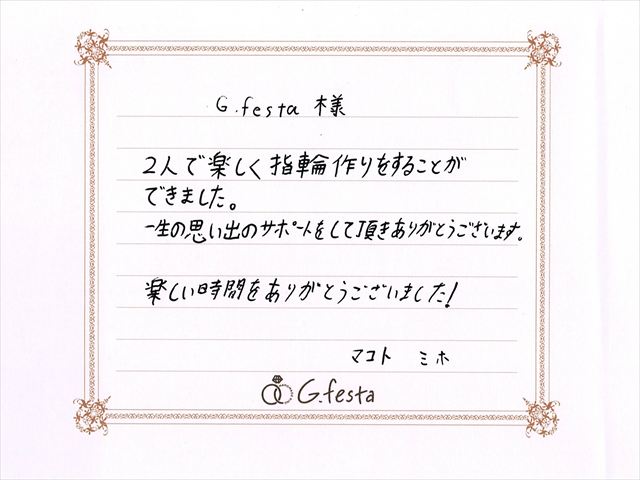 G.festa 様
2人で楽しく指輪作りをすることが
できました。
一生の思い出のサポートをして頂きありがとうございます。
楽しい時間をありがとうございました!
マコト ミホ
G.festa